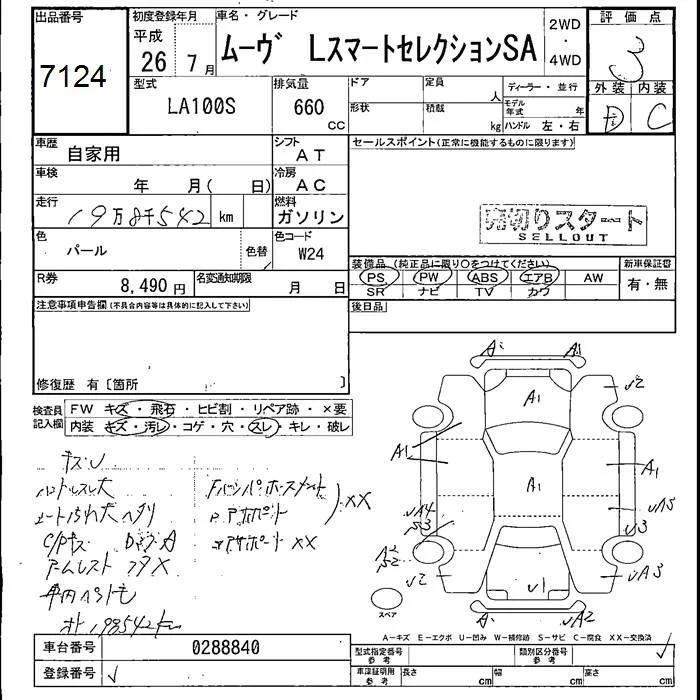 出品番号
7124
初度登録年月
平成
26 7月
車名・グレード
ムーヴ LスマートセレクションSA
2WD
・
4WD
評価点
3
外装 内装
D C
型式
LA100S
排気量
660
CC
ドア
定員
人
形状
積載
kg
ディーラー・並行
モデル年式 年
ハンドル 左・右
車歴
自家用
シフト
AT
車検
年 月( 日)
冷房
AC
走行
19万8千542 km
燃料
ガソリン
色
パール
色替
色コード
W24
R券
8,490円
名変通知期限
月 日
セールスポイント(正常に機能するものに限ります)
売切りスタート
SELLOUT
装備品 (純正品に限り○をつけてください)
PS PW ABS エアB AW
SR ナビ TV カワ
新車保証書
有・無
後日品
注意事項申告欄(不具合内容等は具体的に記入して下さい)
修復歴 有〔箇所 〕
検査員記入欄
FW キズ・飛石・ヒビ割・リペア跡・×要
内装 キズ・汚レ・コゲ・穴・スレ・キレ・破レ
キズU
ハンドルスレ大
シート汚れ大ヘタリ
C/Pキズ
アームレスト フタX
車内ヘコミ
オド198542km
XX
XX
A
A1
A1
U2
A1
A1
A1
UA5
U3
UA4
S3
A2
S2
U2
U1
UA3
A
UA2
スペア
A-キズ E-エクボ U-凹み W-補修跡 S-サビ C-腐食 XX-交換済
車台番号
0288840
登録番号
型式指定番号
参考
類別区分番号
参考
車庫証明用
参考
長さ cm
幅 cm
高さ cm